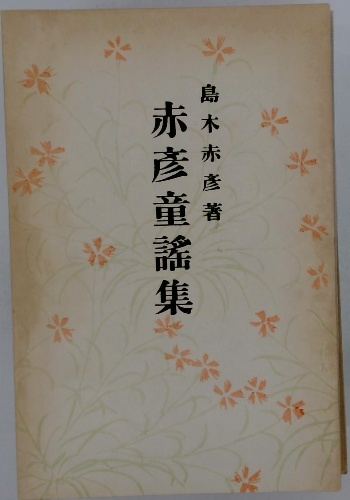 島木赤彦著
赤彦童謠集